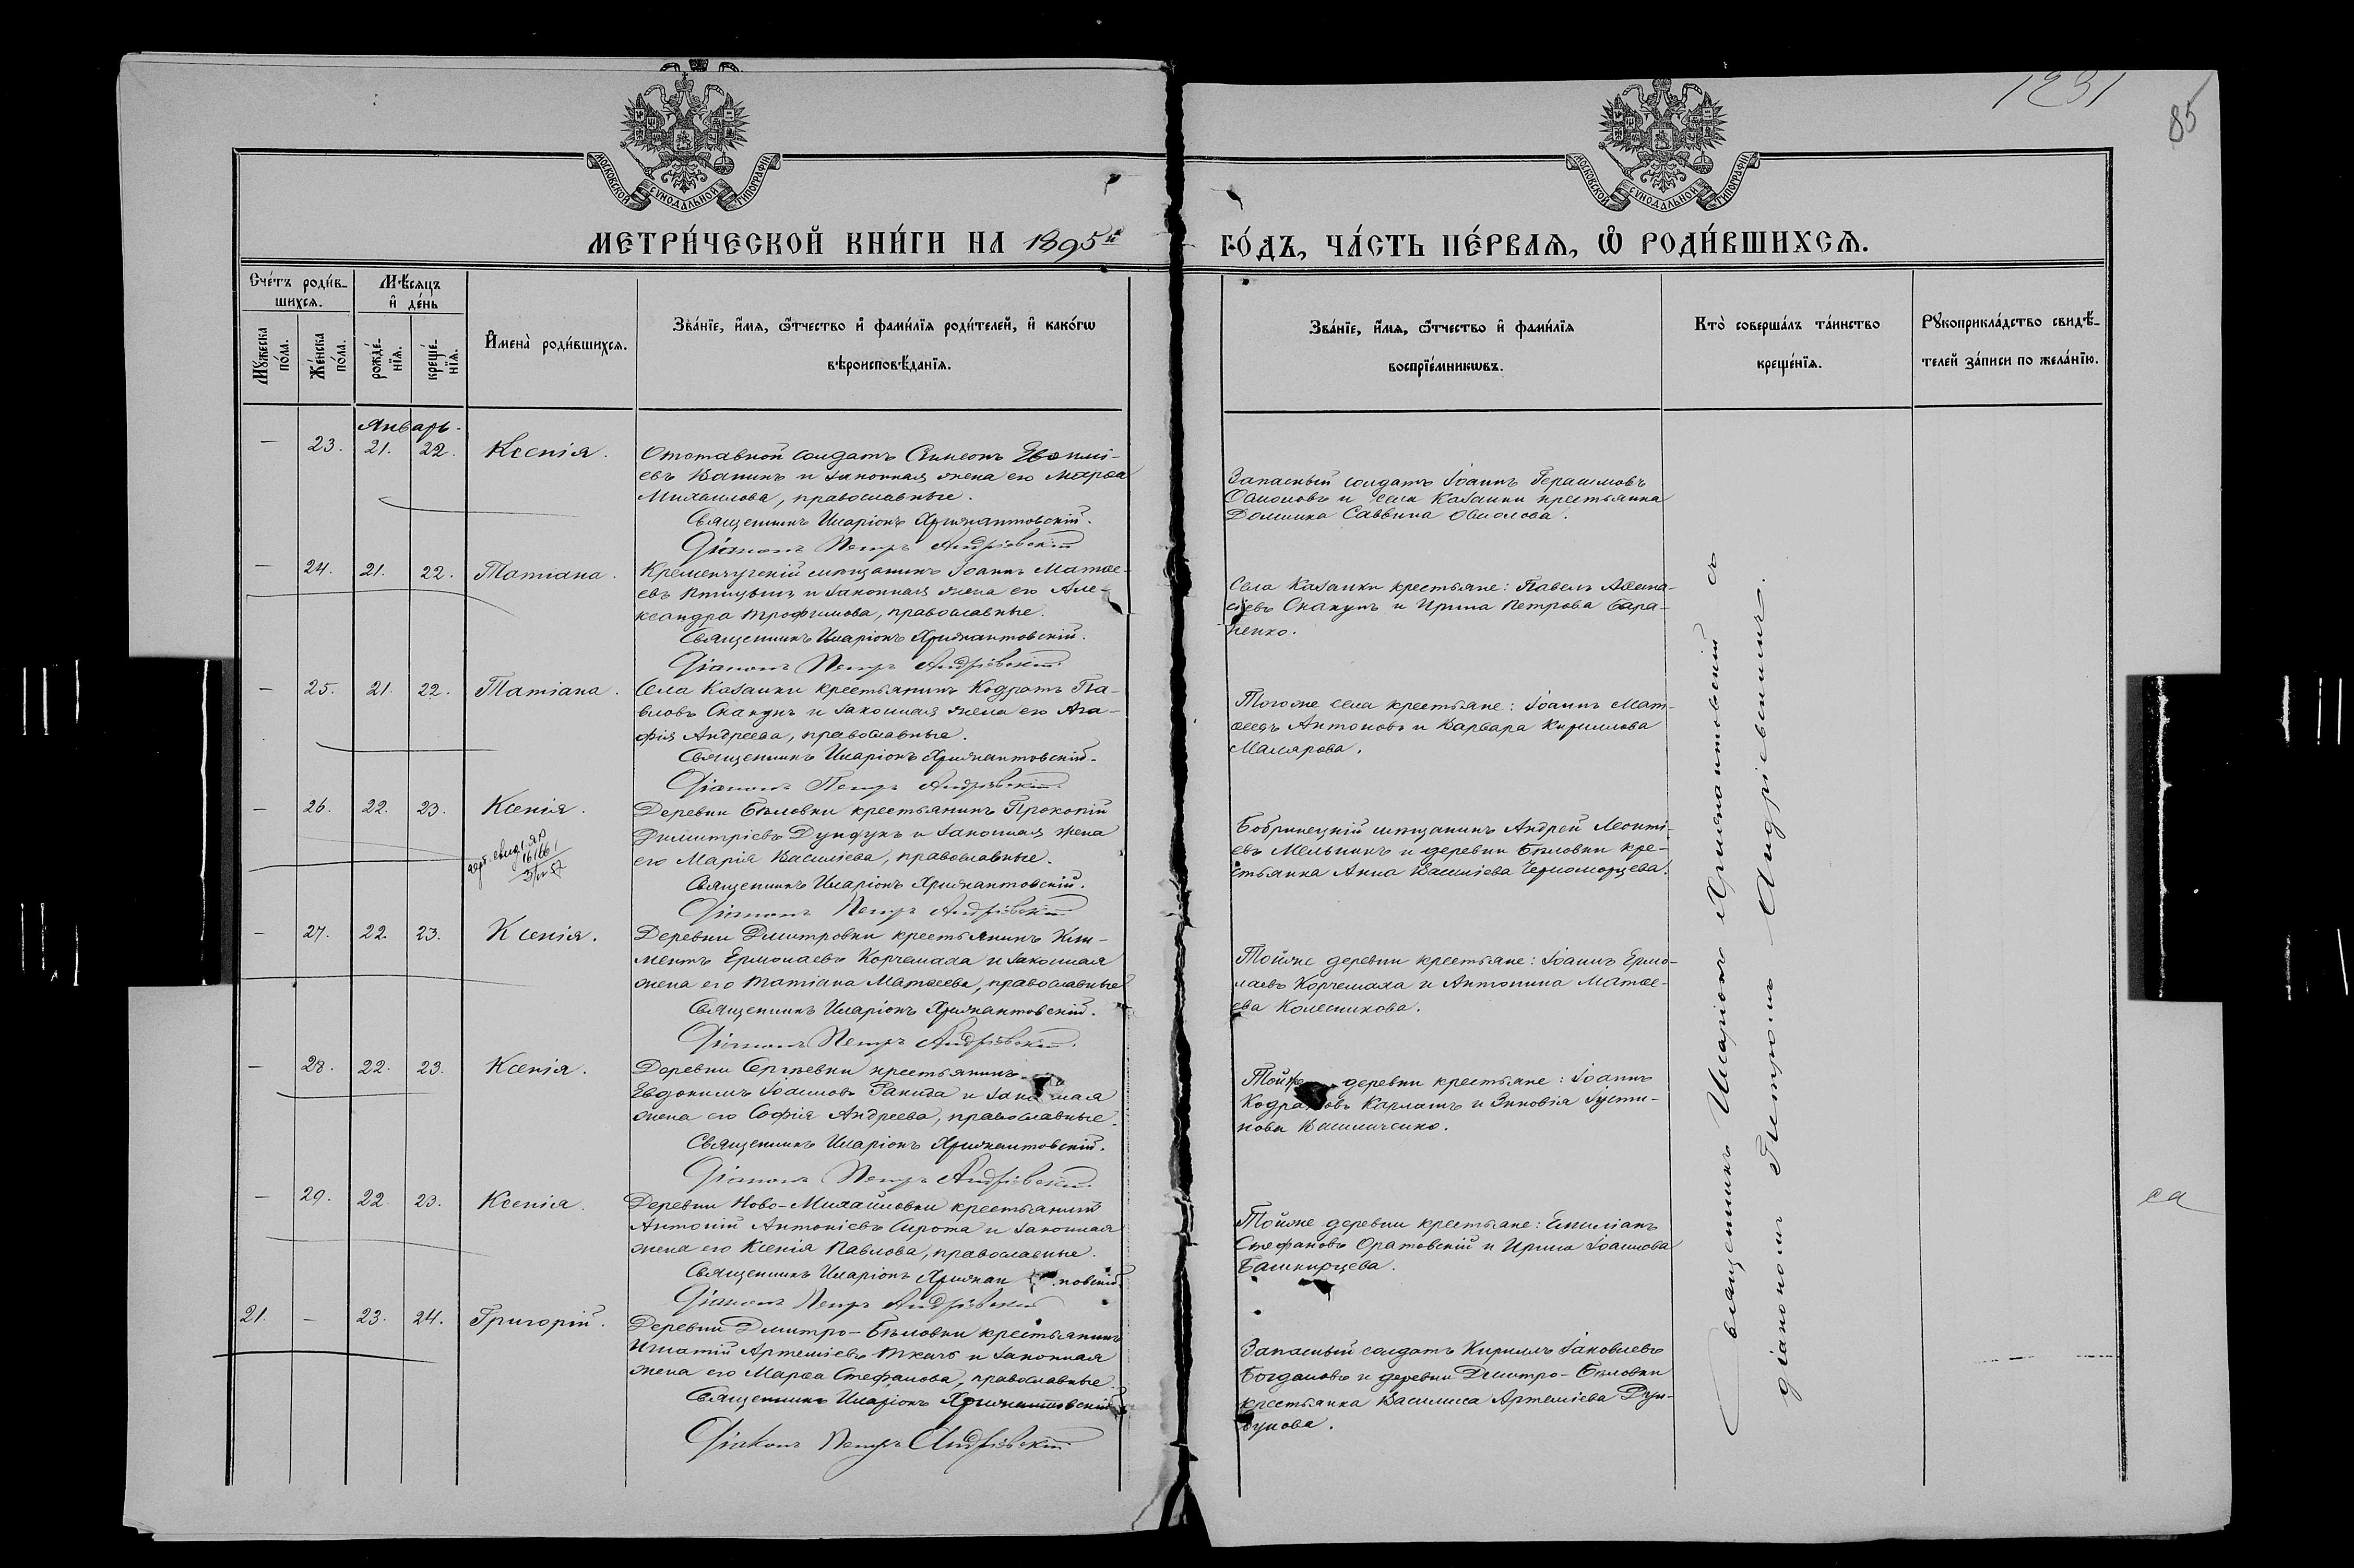 1231
85
МОСКОВСКОЙ СѴНОДАЛЬНОЙ ТИПОГРАФІИ
МОСКОВСКОЙ СѴНОДАЛЬНОЙ ТИПОГРАФІИ
МЕТРИ́ЧЕСКОЙ КНИ́ГИ НА 1895й ГО́ДЪ, ЧА́СТЬ ПЕ́РВАЯ, Ѡ РОДИ́ВШИХСЯ.
Сче́тъ роди́в-
шихся.
Мꙋ́жеска по́ла.
Же́нска по́ла.
Мѣ́сяцъ
и҆ де́нь
рожде́-
нїя.
креще́-
нїя.
И҆мена̀ роди́вшихся.
Зва́нїе, и҆́мя, ѿтчество и҆ фами́лїя роди́телей, и҆ како́гѡ
вѣроисповѣ́данїя.
Зва́нїе, и҆́мя, ѿтчество и҆ фами́лїя
воспрїе́мникѡвъ.
Кто̀ соверша́лъ та́инство
креще́нїя.
Рꙋкоприкла́дство свидѣ́-
телей за́писи по жела́нїю.
Январь.
— 23. 21. 22. Ксенія.
Отставной солдатъ Симеонъ Евѳимі-
евъ Ванинъ и законная жена его Марѳа
Михаилова, православные.
Священникъ Иларіонъ Хрисантовскій.
Діаконъ Петръ Андріевскій
Запасный солдатъ Іоаннъ Герасимовъ
и села Казанки крестьянка
Домника Саввина
— 24. 21. 22. Татіана.
Кременчугскій мѣщанинъ Іоаннъ Матѳе-
евъ Птицынъ и законная жена его Але-
ксандра Трофимова, православные.
Священникъ Иларіонъ Хрисантовскій.
Діаконъ Петръ Андріевскій
Села Казанки крестьяне: Павелъ Аѳана-
сіевъ Скакунъ и Ирина Петрова Бара-
ненко.
— 25. 21. 22. Татіана.
Села Казанки крестьянинъ Кодратъ Па-
вловъ Скакунъ и законная жена его Ага-
фія Андреева, православные.
Священникъ Иларіонъ Хрисантовскій.
Діаконъ Петръ Андріевскій
Тогоже села крестьяне: Іоаннъ Мат-
ѳеевъ Антоновъ и Варвара Кириллова
Малярова.
— 26. 22. 23. Ксенія.
Деревни Бѣловки крестьянинъ Прокопій
Димитріевъ Дундукъ и законная жена
его Марія Василіева, православные.
Священникъ Иларіонъ Хрисантовскій.
Діаконъ Петръ Андріевскій
Бобринецкій мѣщанинъ Андрей Леонті-
евъ Мельникъ и деревни Бѣловки кре-
стьянка Анна Василіева Черноморцева.
— 27. 22. 23. Ксенія.
Деревни Дмитровки крестьянинъ Кли-
ментъ Ермолаевъ Корчемаха и законная
жена его Татіана Матѳеева, православные
Священникъ Иларіонъ Хрисантовскій.
Діаконъ Петръ Андріевскій.
Тойже деревни крестьяне: Іоаннъ Ермо-
лаевъ Корчемаха и Антонина Матѳе-
ева Колесникова.
— 28. 22. 23. Ксенія.
Деревни Сергѣевки крестьянинъ
Евдокимъ Іоанновъ и законная
жена его Софія Андреева, православные.
Священникъ Иларіонъ Хрисантовскій.
Діаконъ Петръ Андріевскій
деревни крестьяне: Іоаннъ
Кодратовъ Карлашъ и Зиновія Іусти-
нова Василиченко.
— 29. 22. 23. Ксенія.
Деревни Ново-Михайловки крестьянинъ
Антоній Антоніевъ Сирота и законная
жена его Ксенія Павлова, православные.
Священникъ Иларіонъ
Діаконъ Петръ Андріевскій
Тойже деревни крестьяне: Емиліанъ
Стефановъ Оратовскій и Ирина Іоаннова
Башкирцева.
21. — 23. 24. Григорій.
Деревни Дмитро-Бѣловки крестьянинъ
Игнатій Артеміевъ Ткачъ и законная
жена его Марѳа Стефанова, православные
Священникъ Иларіонъ Хрисантовскій
Діаконъ Петръ Андріевскій
Запасный солдатъ Кириллъ Іаковлевъ
Богдановъ и деревни Дмитро-Бѣловки
крестьянка Василиса Артеміева Дун-
дукова.
Священникъ Иларіонъ Хрисантовскій съ
діакономъ Петромъ Андріевскимъ.